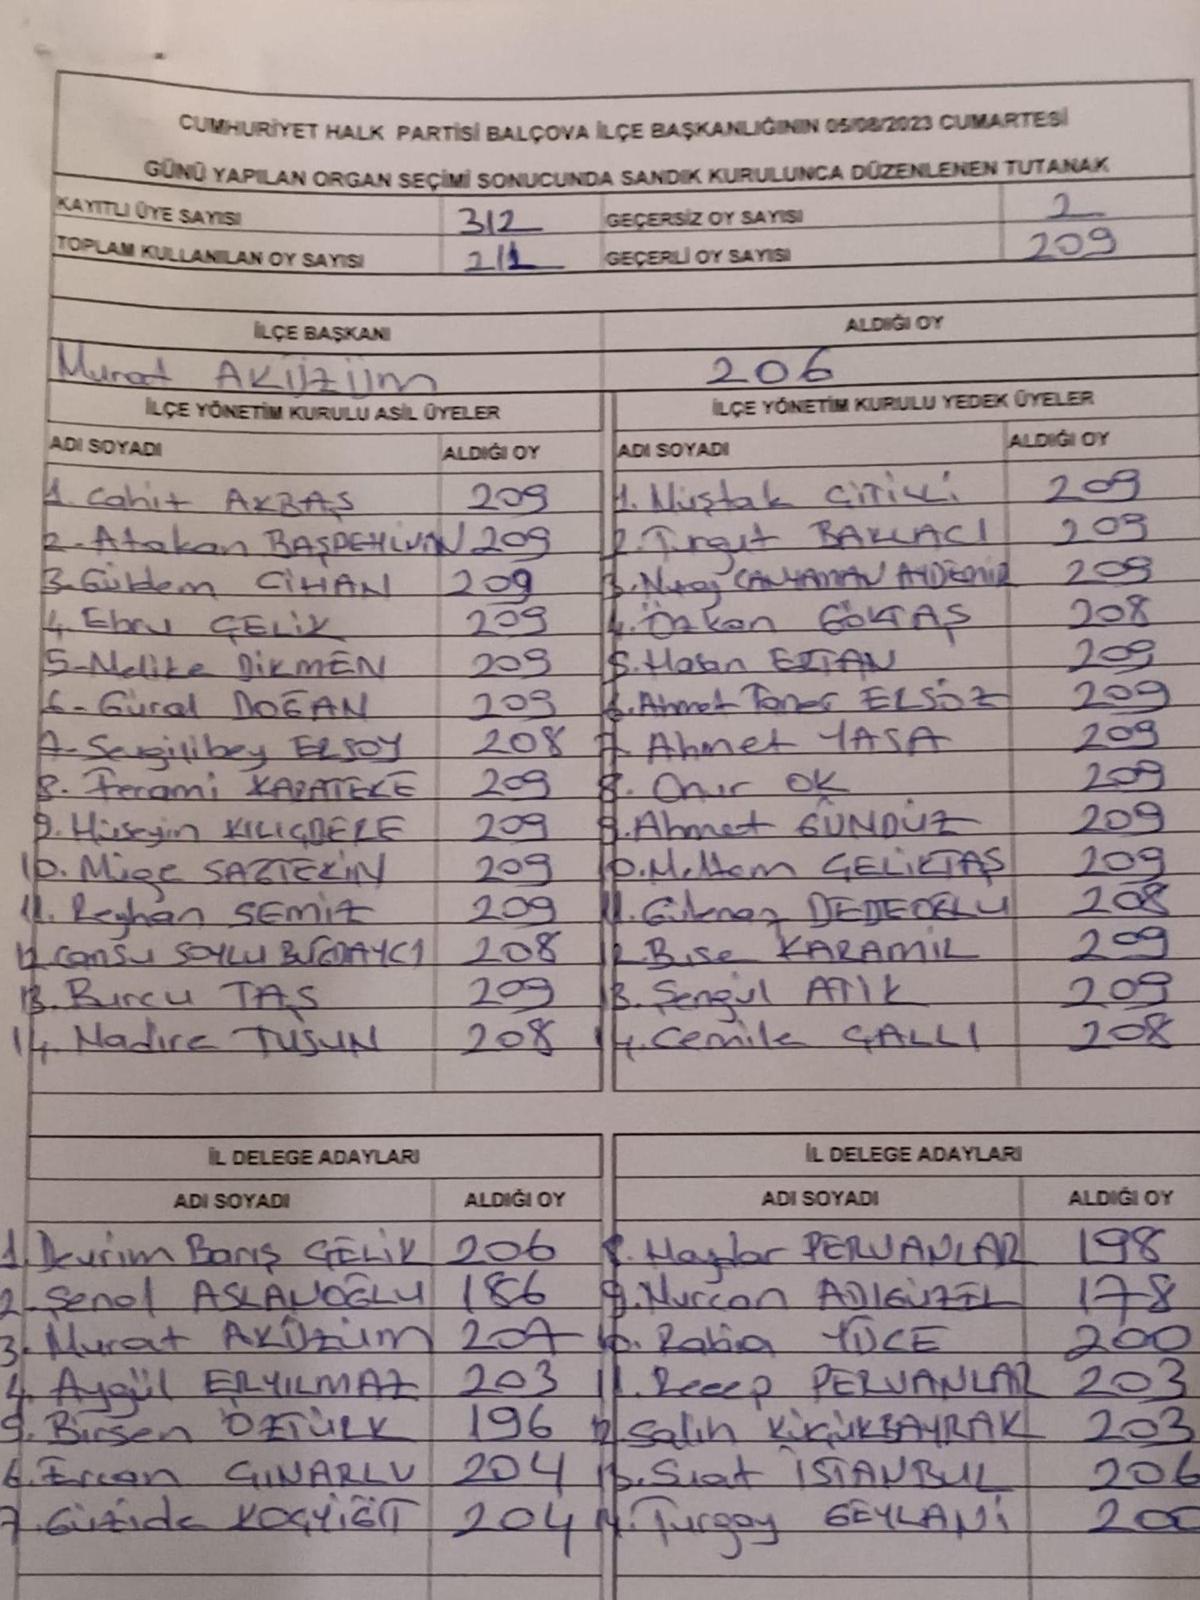 CUMHURİYET HALK PARTİSİ BALÇOVA İLÇE BAŞKANLIĞININ 05/08/2023 CUMARTESİ
GÜNÜ YAPILAN ORGAN SEÇİMİ SONUCUNDA SANDIK KURULUNCA DÜZENLENEN TUTANAK
KAYITLI ÜYE SAYISI 312 GEÇERSİZ OY SAYISI 2
TOPLAM KULLANILAN OY SAYISI 211 GEÇERLİ OY SAYISI 209
İLÇE BAŞKANI ALDIĞI OY
Murat AKÜZÜM 206
İLÇE YÖNETİM KURULU ASİL ÜYELER İLÇE YÖNETİM KURULU YEDEK ÜYELER
ADI SOYADI ALDIĞI OY ADI SOYADI ALDIĞI OY
1. Cahit AKBAŞ 209 1. Müştak ÇİTİLİ 209
2. Atakan BAŞPEHLİVAN 209 2. Turgut BAKLACI 209
3. Güldem CİHAN 209 3. Nuray CANYAMAN AYDEMİR 209
4. Ebru ÇELİK 209 4. Özkan GÖKTAŞ 208
5. Melike DİKMEN 209 5. Hasan ERTAN 209
6. Gürol DOĞAN 209 6. Ahmet Taner ELSÖZ 209
7. Sevgilibey ELSOY 208 7. Ahmet YASA 209
8. Ferami KARATEKE 209 8. Onur OK 209
9. Hüseyin KILIÇDERE 209 9. Ahmet GÜNDÜZ 209
10. Müge SAZTEKİN 209 10. Meltem ÇELİKTAŞ 209
11. Reyhan SEMİZ 209 11. Gülenaz DEDEOĞLU 208
12. Cansu SOYLU BUĞDAYCI 208 12. Buse KARAMİL 209
13. Burcu TAŞ 209 13. Şengül ATİK 209
14. Nadire TUŞUN 208 14. Cemile ÇALLI 208
İL DELEGE ADAYLARI İL DELEGE ADAYLARI
ADI SOYADI ALDIĞI OY ADI SOYADI ALDIĞI OY
1. Devrim Barış ÇELİK 206 8. Haydar PERVANLAR 198
2. Şenol ASLANOĞLU 186 9. Nurcan ADIGÜZEL 178
3. Murat AKÜZÜM 207 10. Rabia YÜCE 200
4. Aygül ERYILMAZ 203 11. Recep PERVANLAR 203
5. Birsen ÖZTÜRK 196 12. Salih KÜÇÜKBAYRAK 203
6. Ercan ÇINARLI 204 13. Suat İSTANBUL 206
7. Güzide KOÇYİĞİT 204 14. Turgay GEYLANİ 200